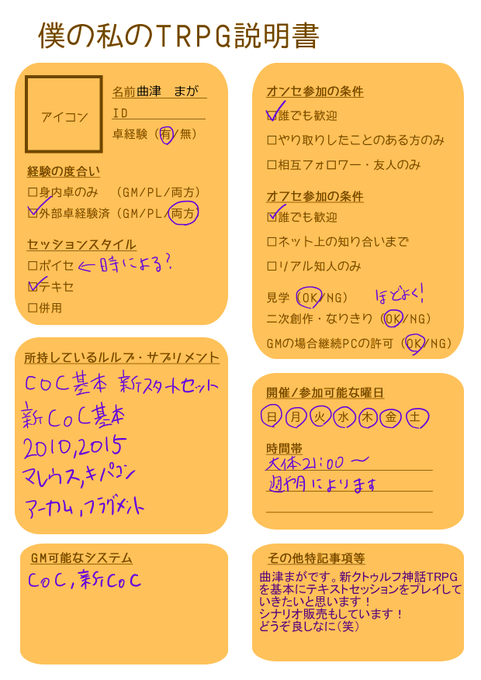 僕の私のTRPG説明書
アイコン
名前曲津 まが
ID
卓経験（有/無）
経験の度合い
□身内卓のみ （GM/PL/両方）
□外部卓経験済（GM/PL/両方）
セッションスタイル
□ボイセ ←時による?
□テキセ
□併用
所持しているルルブ・サプリメント
CoC基本 新スタートセット
新CoC基本
2010,2015
マレウス,キパコン
アーカム,フラグメント
GM可能なシステム
CoC,新CoC
オンセ参加の条件
□誰でも歓迎
□やり取りしたことのある方のみ
□相互フォロワー・友人のみ
オフセ参加の条件
□誰でも歓迎
□ネット上の知り合いまで
□リアル知人のみ
見学（OK/NG） ほどよく!
二次創作・なりきり（OK/NG）
GMの場合継続PCの許可（OK/NG）
開催/参加可能な曜日
日 月 火 水 木 金 土
時間帯
大体21:00〜
週や月によります
その他特記事項等
曲津まがです。新クトゥルフ神話TRPG
を基本にテキストセッションをプレイして
いきたいと思います！
シナリオ販売もしています！
どうぞ良しなに(笑)